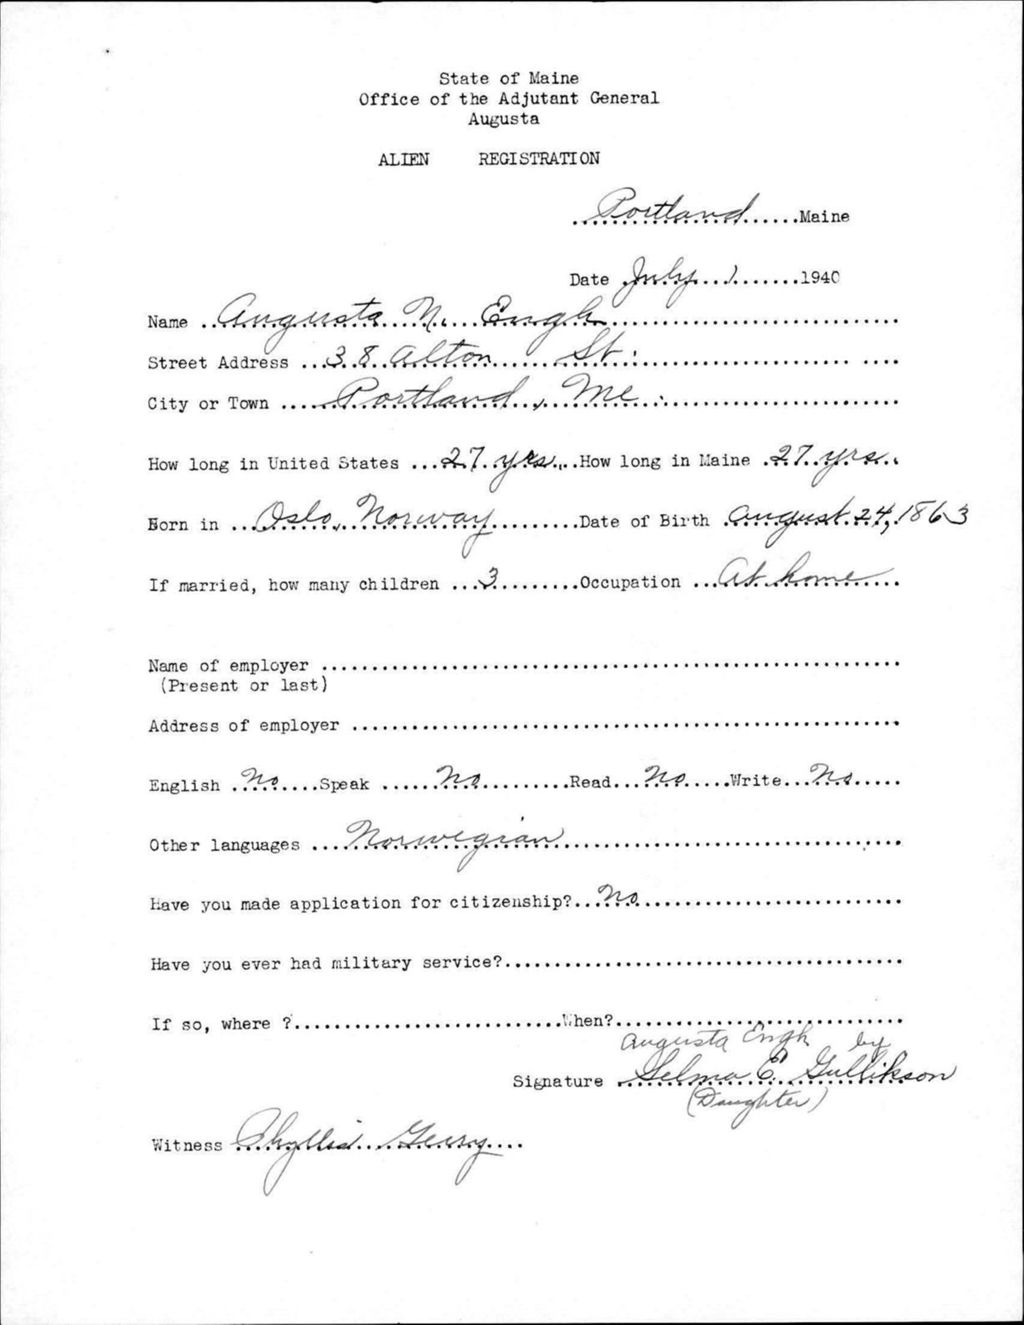 State of Maine
Office of the Adjutant General
Augusta
ALIEN REGISTRATION
Portland Maine
Date July 1 1940
Name Augusta N. Engh
Street Address 38 Alton St.
City or Town Portland, Me.
How long in United States 27 yrs. How long in Maine 27 yrs.
Born in Oslo, Norway Date of Birth August 24, 1863
If married, how many children 3 Occupation At home
Name of employer
(Present or last)
Address of employer
English No Speak No Read No Write No
Other languages Norwegian
Have you made application for citizenship? No
Have you ever had military service?
If so, where ? When?
Augusta Engh by
Signature Selma E. Gullikson
(Daughter)
Witness Phyllis Geary